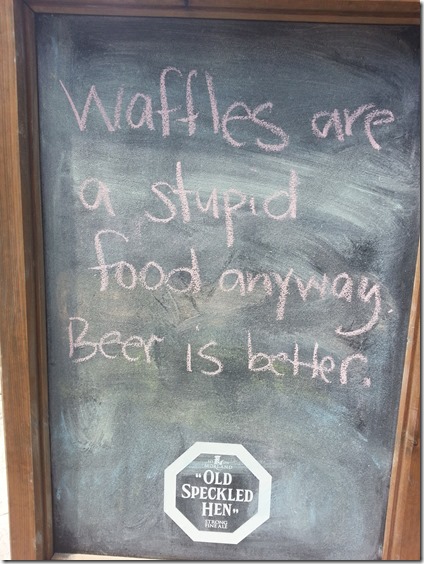 Waffles are
a stupid
food anyway.
Beer is better.
MORLAND
"OLD
SPECKLED
HEN"
STRONG
FINE ALE